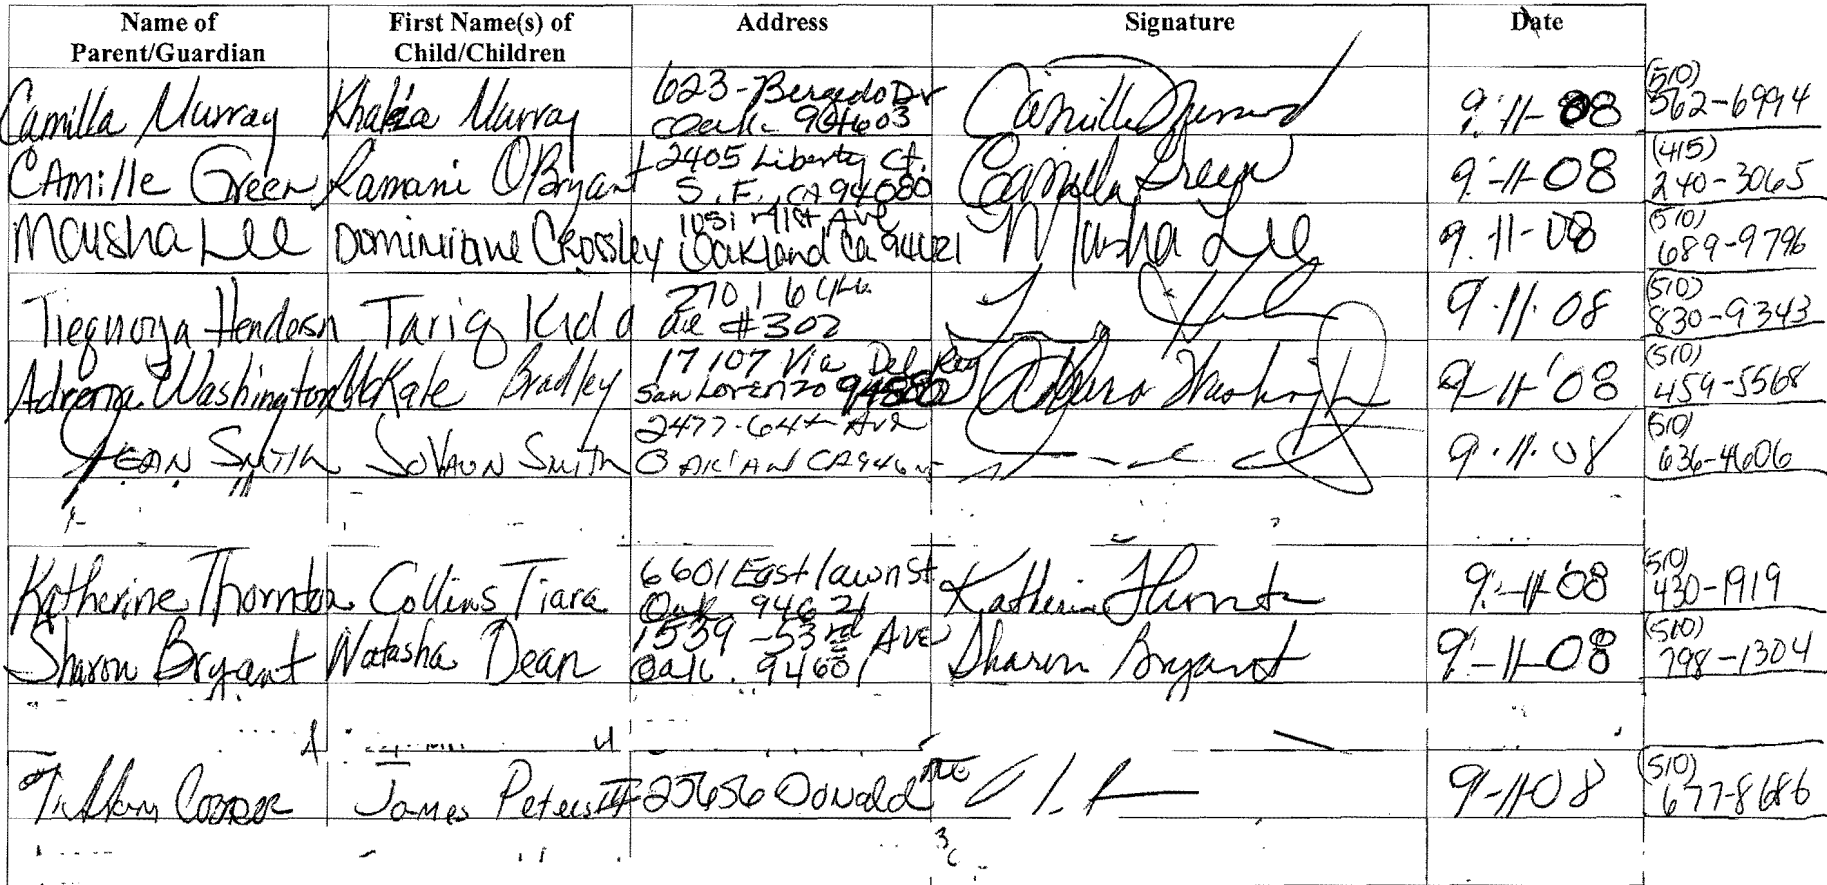 Name of Parent/Guardian
First Name(s) of Child/Children
Address
Signature
Date
Camilla Murray
Khalia Murray
623-Bergedo Dr
Oak. 94603
Camilla Murray
9-11-08
(510)
562-6994
CAmille Green
Ramani O'Bryant
2405 Liberty Ct.
S.F., CA 94080
Camille Green
9-11-08
(415)
240-3065
Maisha Lee
Dominique Crossley
Ave
Oakland Ca
Maisha Lee
9-11-08
(510)
689-9796
Henderson
Tariq Kidd
2701 64th
ave #302
9.11.08
(510)
830-9343
Adrema Washington
McKate Bradley
17107 Via Del Rey
San Lorenzo
Washington
9-11-08
(510)
459-5568
JEAN SMITH
SoVaun Smith
2477-64th Ave
9.11.08
(510)
636-4606
Katherine Thornton
Collins Tiara
6601 Eastlawn St
Oak. 94621
Katherine Thornton
9-11-08
(510)
430-1919
Sharon Bryant
Natasha Dean
1539-53rd AVE
Oak. 94601
Sharon Bryant
9-11-08
(510)
798-1304
Tiffany Cooper
James Peters III
25656 Donald Ave
9-11-08
(510)
677-8686